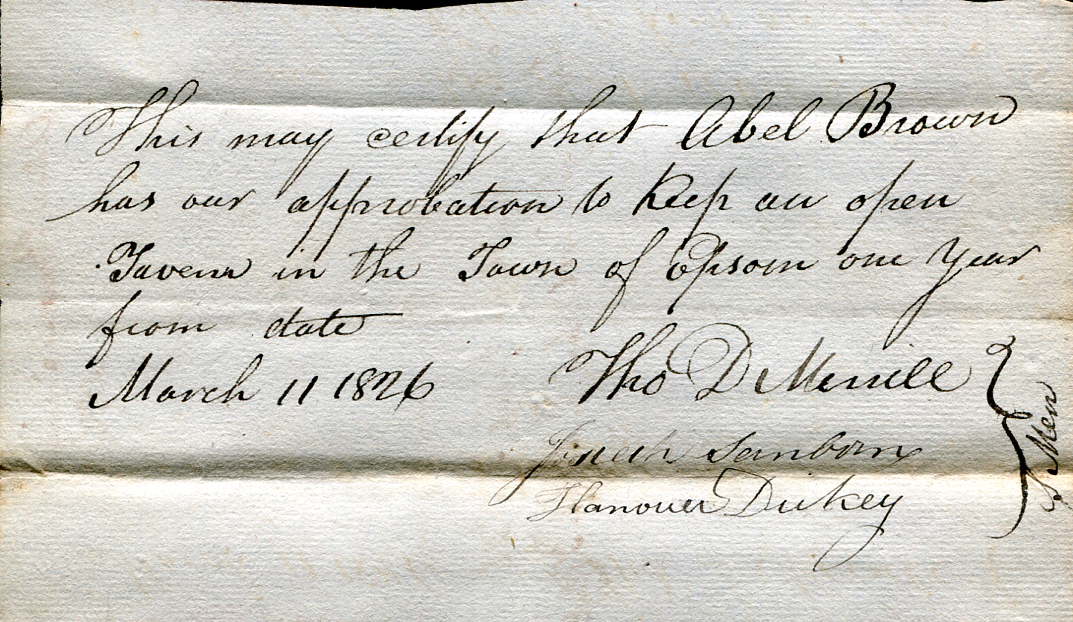 This may certify that Abel Brown
has our approbation to keep an open
Tavern in the Town of Epsom one year
from date
March 11 1826 Tho D Merrill
Joseph Sanborn
Hanover Dickey
S Men